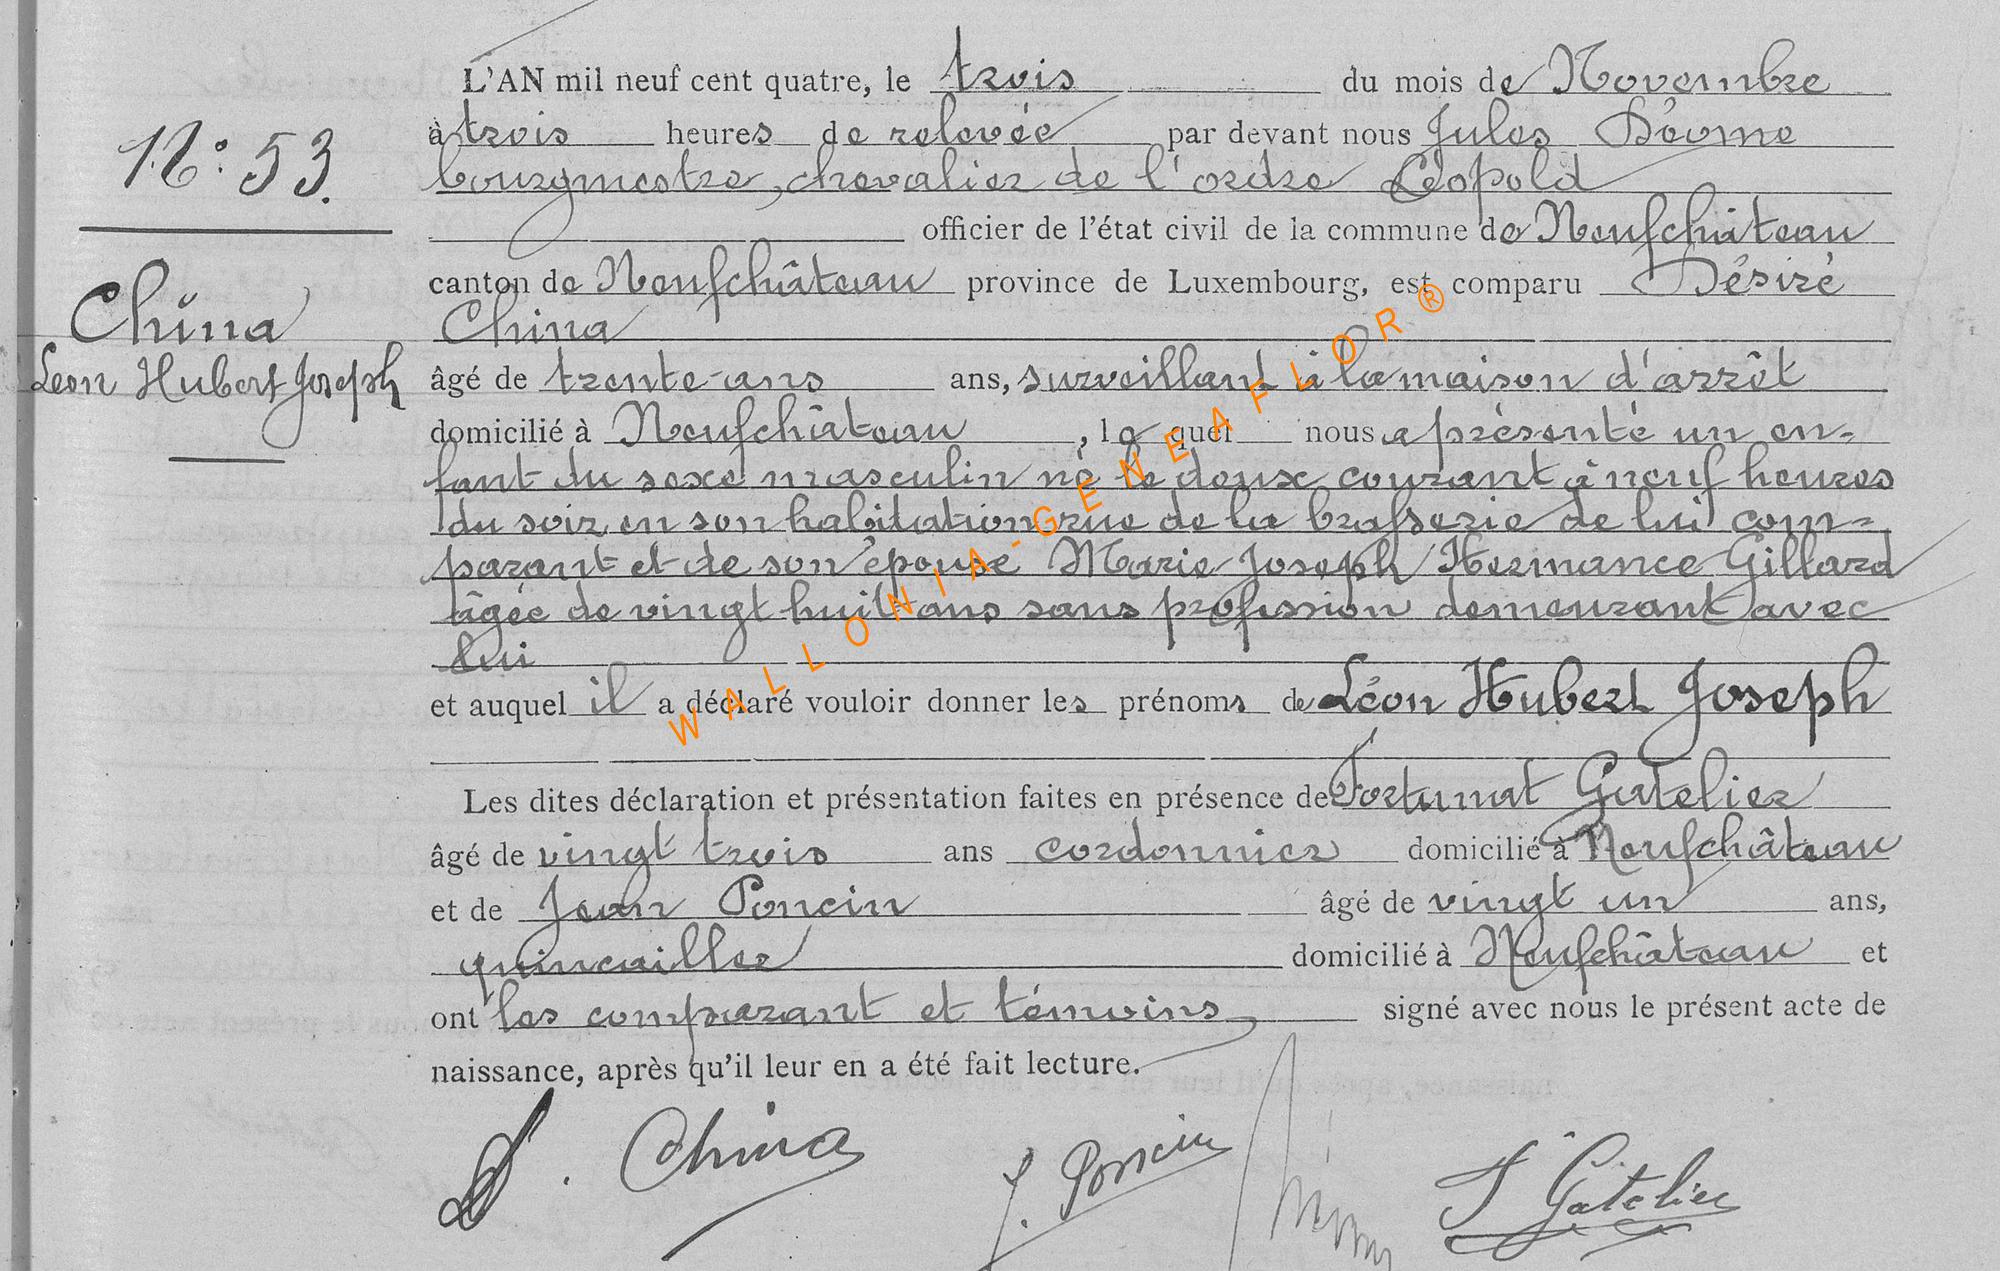 L'AN mil neuf cent quatre, le trois du mois de Novembre
N° 53.
à trois heures de relevée par devant nous Jules
bourgmestre, chevalier de l'ordre Léopold
officier de l'état civil de la commune de Neufchâteau
canton de Neufchâteau province de Luxembourg, est comparu Désiré
China
China
Léon Hubert Joseph
âgé de trente-ans ans, surveillant à la maison d'arrêt
domicilié à Neufchâteau, le quel nous a présenté un en-
fant du sexe masculin né le deux courant à neuf heures
du soir en son habitation rue de la brasserie de lui com-
parant et de son épouse Marie Joseph Hermance Gillard
âgée de vingt huit ans sans profession demeurant avec
lui
et auquel il a déclaré vouloir donner les prénoms de Léon Hubert Joseph
Les dites déclaration et présentation faites en présence de Fortunat Gatelier
âgé de vingt trois ans cordonnier domicilié à Neufchâteau
et de Jean Poncin âgé de vingt un ans,
quincailler domicilié à Neufchâteau et
ont les comparant et témoins signé avec nous le présent acte de
naissance, après qu'il leur en a été fait lecture.
D. China J. Poncin F Gatelier
WALLONIA-GENEAFLOR®